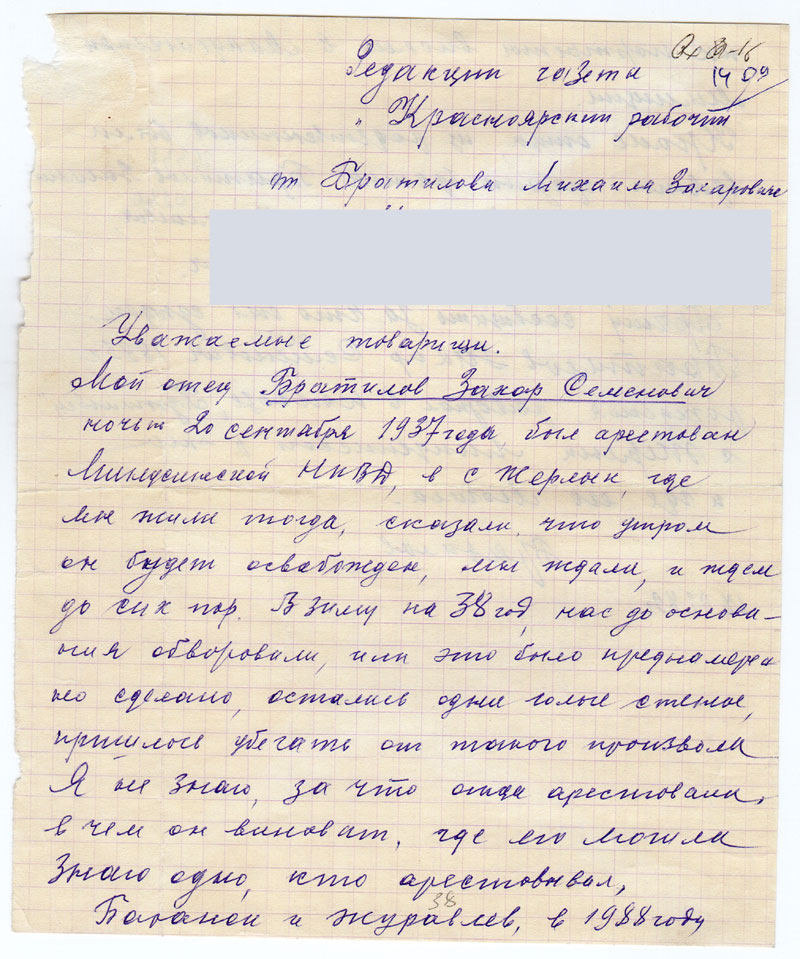 14 09
Редакции газеты
"Красноярский рабочий
от Братилова Михаила Захаровича
Уважаемые товарищи.
Мой отец Братилов Захар Семенович
ночью 20 сентября 1937 года был арестован
Минусинской НКВД, в с Жерлык, где
мы жили тогда, сказали, что утром
он будет освобожден, мы ждали, и ждем
до сих пор. В зиму на 38 год, нас до основа-
ния обворовали, или это было преднамерен
но сделано, остались одни голые стены,
пришлось убегать от такого произвола
Я не знаю, за что отца арестовали,
в чем он виноват, где его могила
Знаю одно, кто арестовывал,
38
и Журавлев, в 1988 году